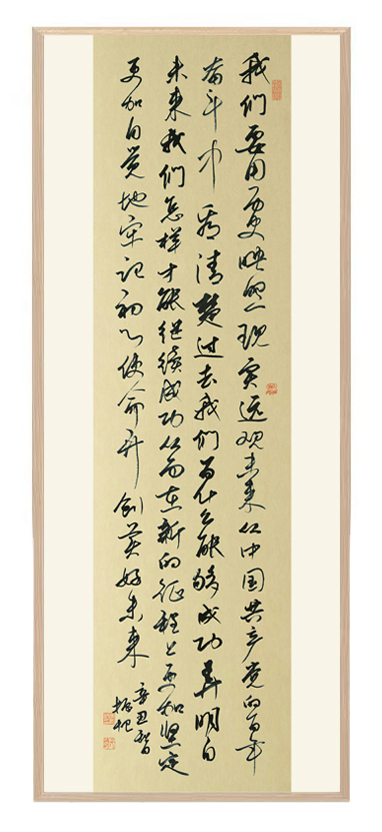 我们要用历史映照现实远观未来从中国共产党的百年
奋斗中看清楚过去我们为什么能够成功弄明白
未来我们怎样才能继续成功从而在新的征程上更加坚定
更加自觉地牢记初心使命开创美好未来
辛丑
振